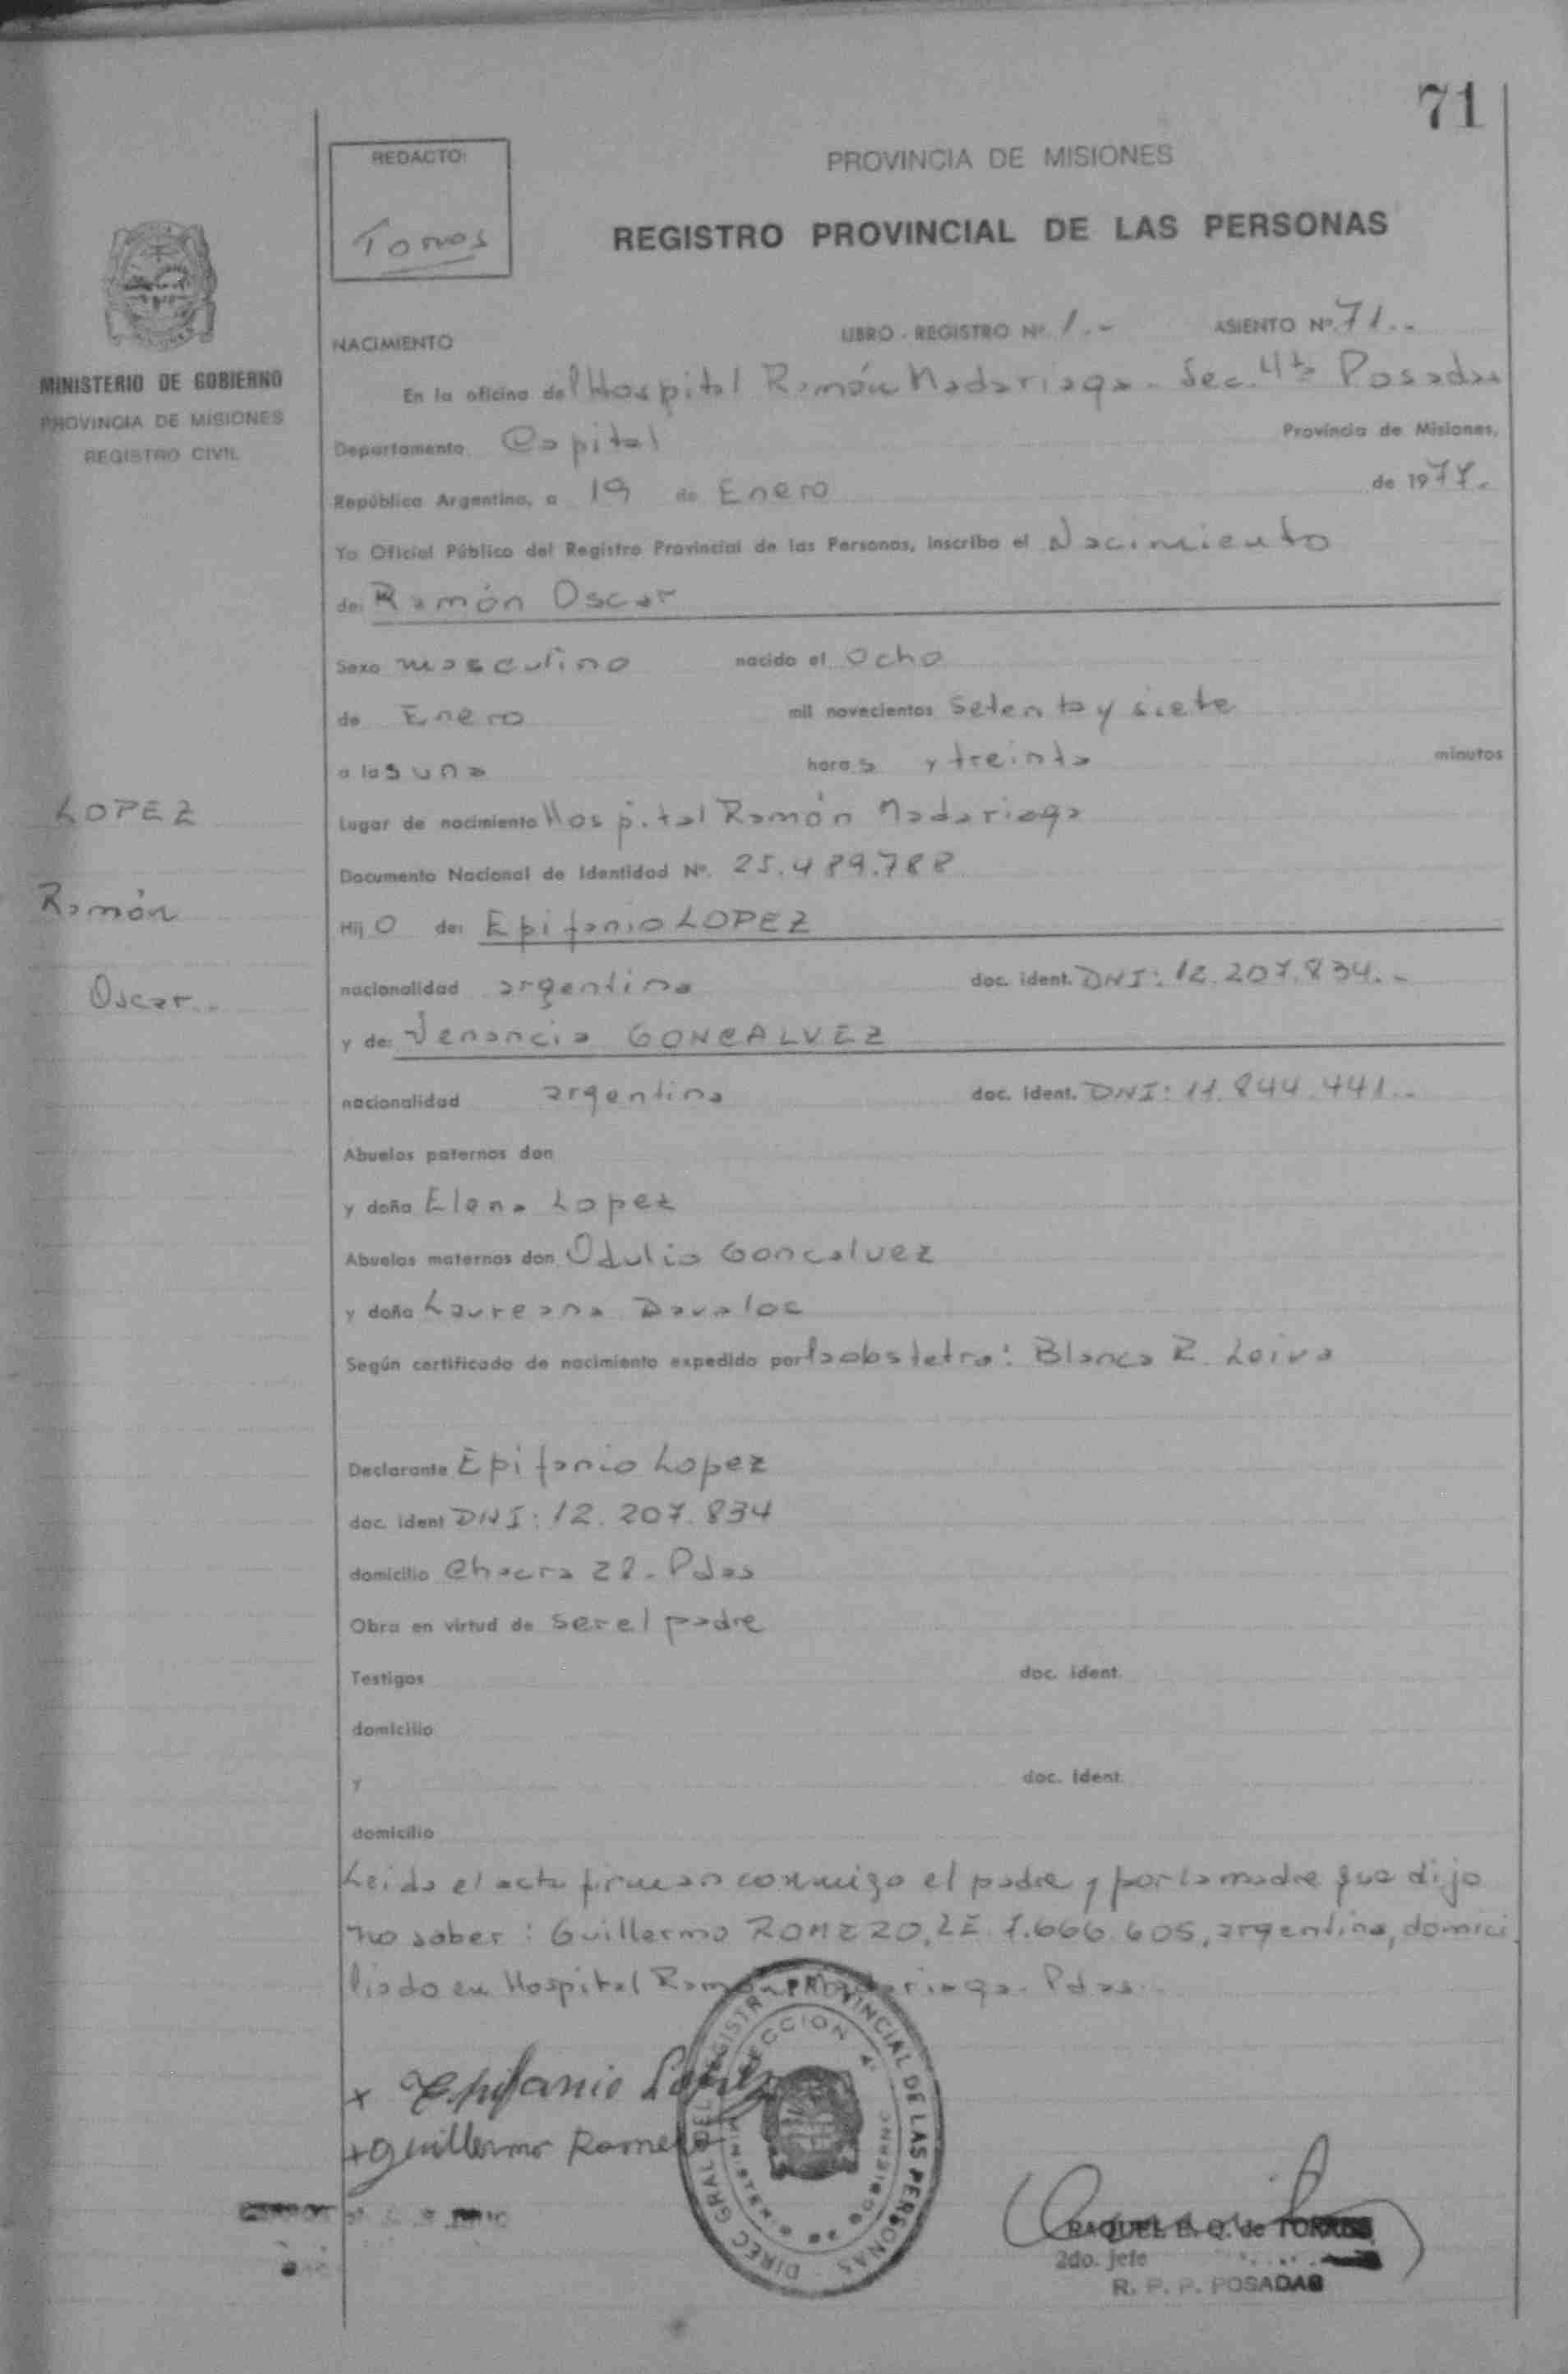 71
REDACTO:
Torres
PROVINCIA DE MISIONES
REGISTRO PROVINCIAL DE LAS PERSONAS
MINISTERIO DE GOBIERNO
PROVINCIA DE MISIONES
REGISTRO CIVIL
NACIMIENTO LIBRO - REGISTRO Nº 1.- ASIENTO Nº 71..
En la oficina del Hospital Ramón Madariaga - Sec. 4ta Posadas
Departamento Capital Provincia de Misiones,
República Argentina, a 19 de Enero de 1977.
Yo Oficial Público del Registro Provincial de las Personas, inscribo el Nacimiento
de: Ramón Oscar
Sexo masculino nacido el Ocho
de Enero mil novecientos Setenta y siete
a las una horas y treinta minutos
LOPEZ
Ramón
Oscar..
Lugar de nacimiento Hospital Ramón Madariaga
Documento Nacional de Identidad Nº. 25.489.788
Hijo de: Epifanio LOPEZ
nacionalidad argentina doc. ident. DNI: 12.207.834.-
y de: Venancia GONCALVEZ
nacionalidad argentina doc. ident. DNI: 11.844.441..
Abuelos paternos don
y doña Elena Lopez
Abuelos maternos don Odulio Goncalvez
y doña Laureana Davalos
Según certificado de nacimiento expedido por la obstetra: Blanca R. Leiva
Declarante Epifanio Lopez
doc. ident DNI: 12.207.834
domicilio Chacra 28 - Pdas
Obra en virtud de ser el padre
Testigos doc. ident.
domicilio
y doc. ident.
domicilio
Leida el acta firman conmigo el padre y por la madre que dijo
no saber: Guillermo ROMERO, LE 7.666.605, argentino, domici
liado en Hospital Ramón Madariaga. Pdas..
x Epifanio Lopez
x Guillermo Romero
DIREC. GRAL. DEL REGISTRO PROVINCIAL DE LAS PERSONAS
SECCION 4ª
MINISTERIO DE GOBIERNO
RAQUEL E. Q. de TORRES
2do. Jefe
R. P. P. POSADAS